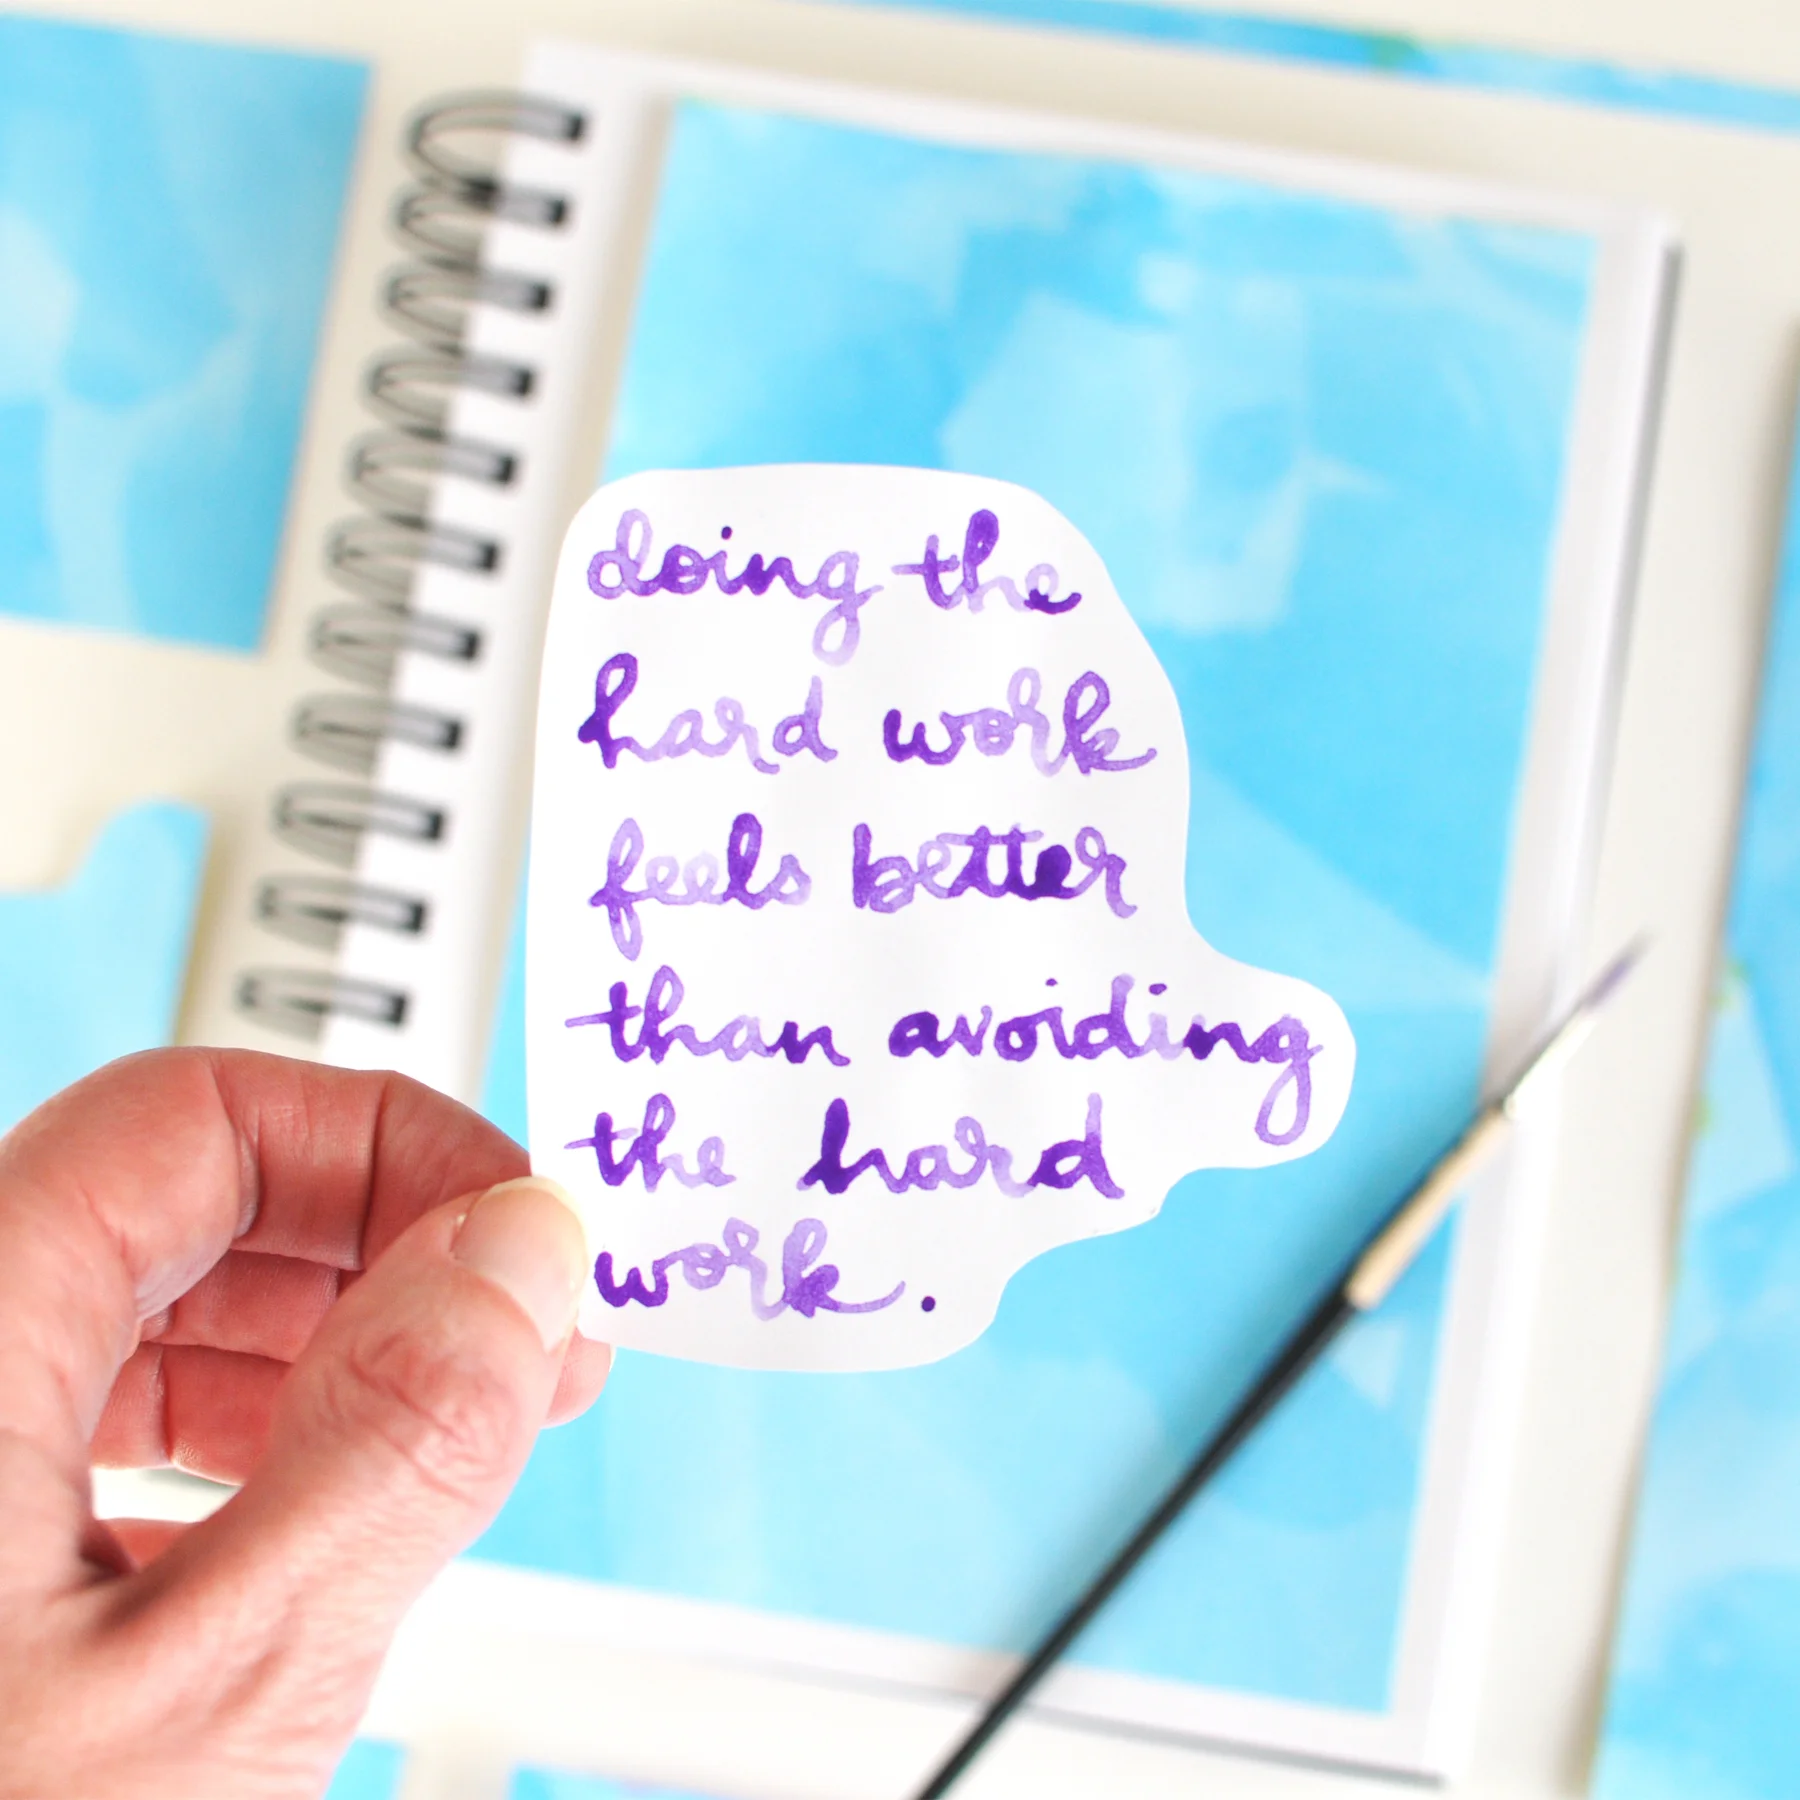 doing the
hard work
feels better
than avoiding
the hard
work.